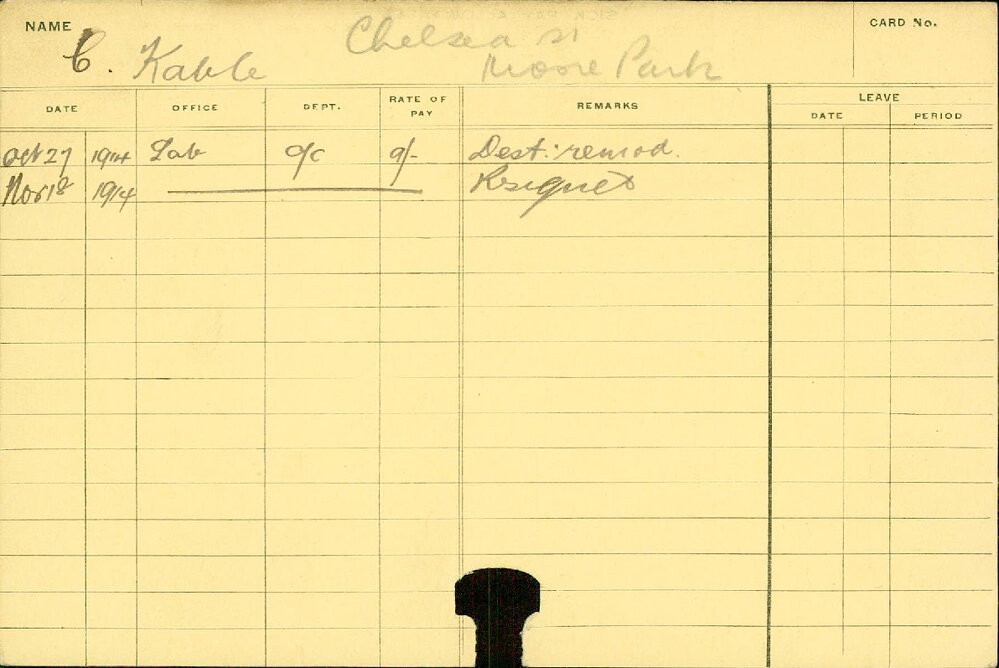 NAME
C. Kable
Chelsea St
Moore Park
CARD No.
DATE OFFICE DEPT. RATE OF PAY REMARKS LEAVE
DATE PERIOD
Oct 27 1914 Lab O/C 9/- Dest: remod.
Nov 18 1914 Resigned